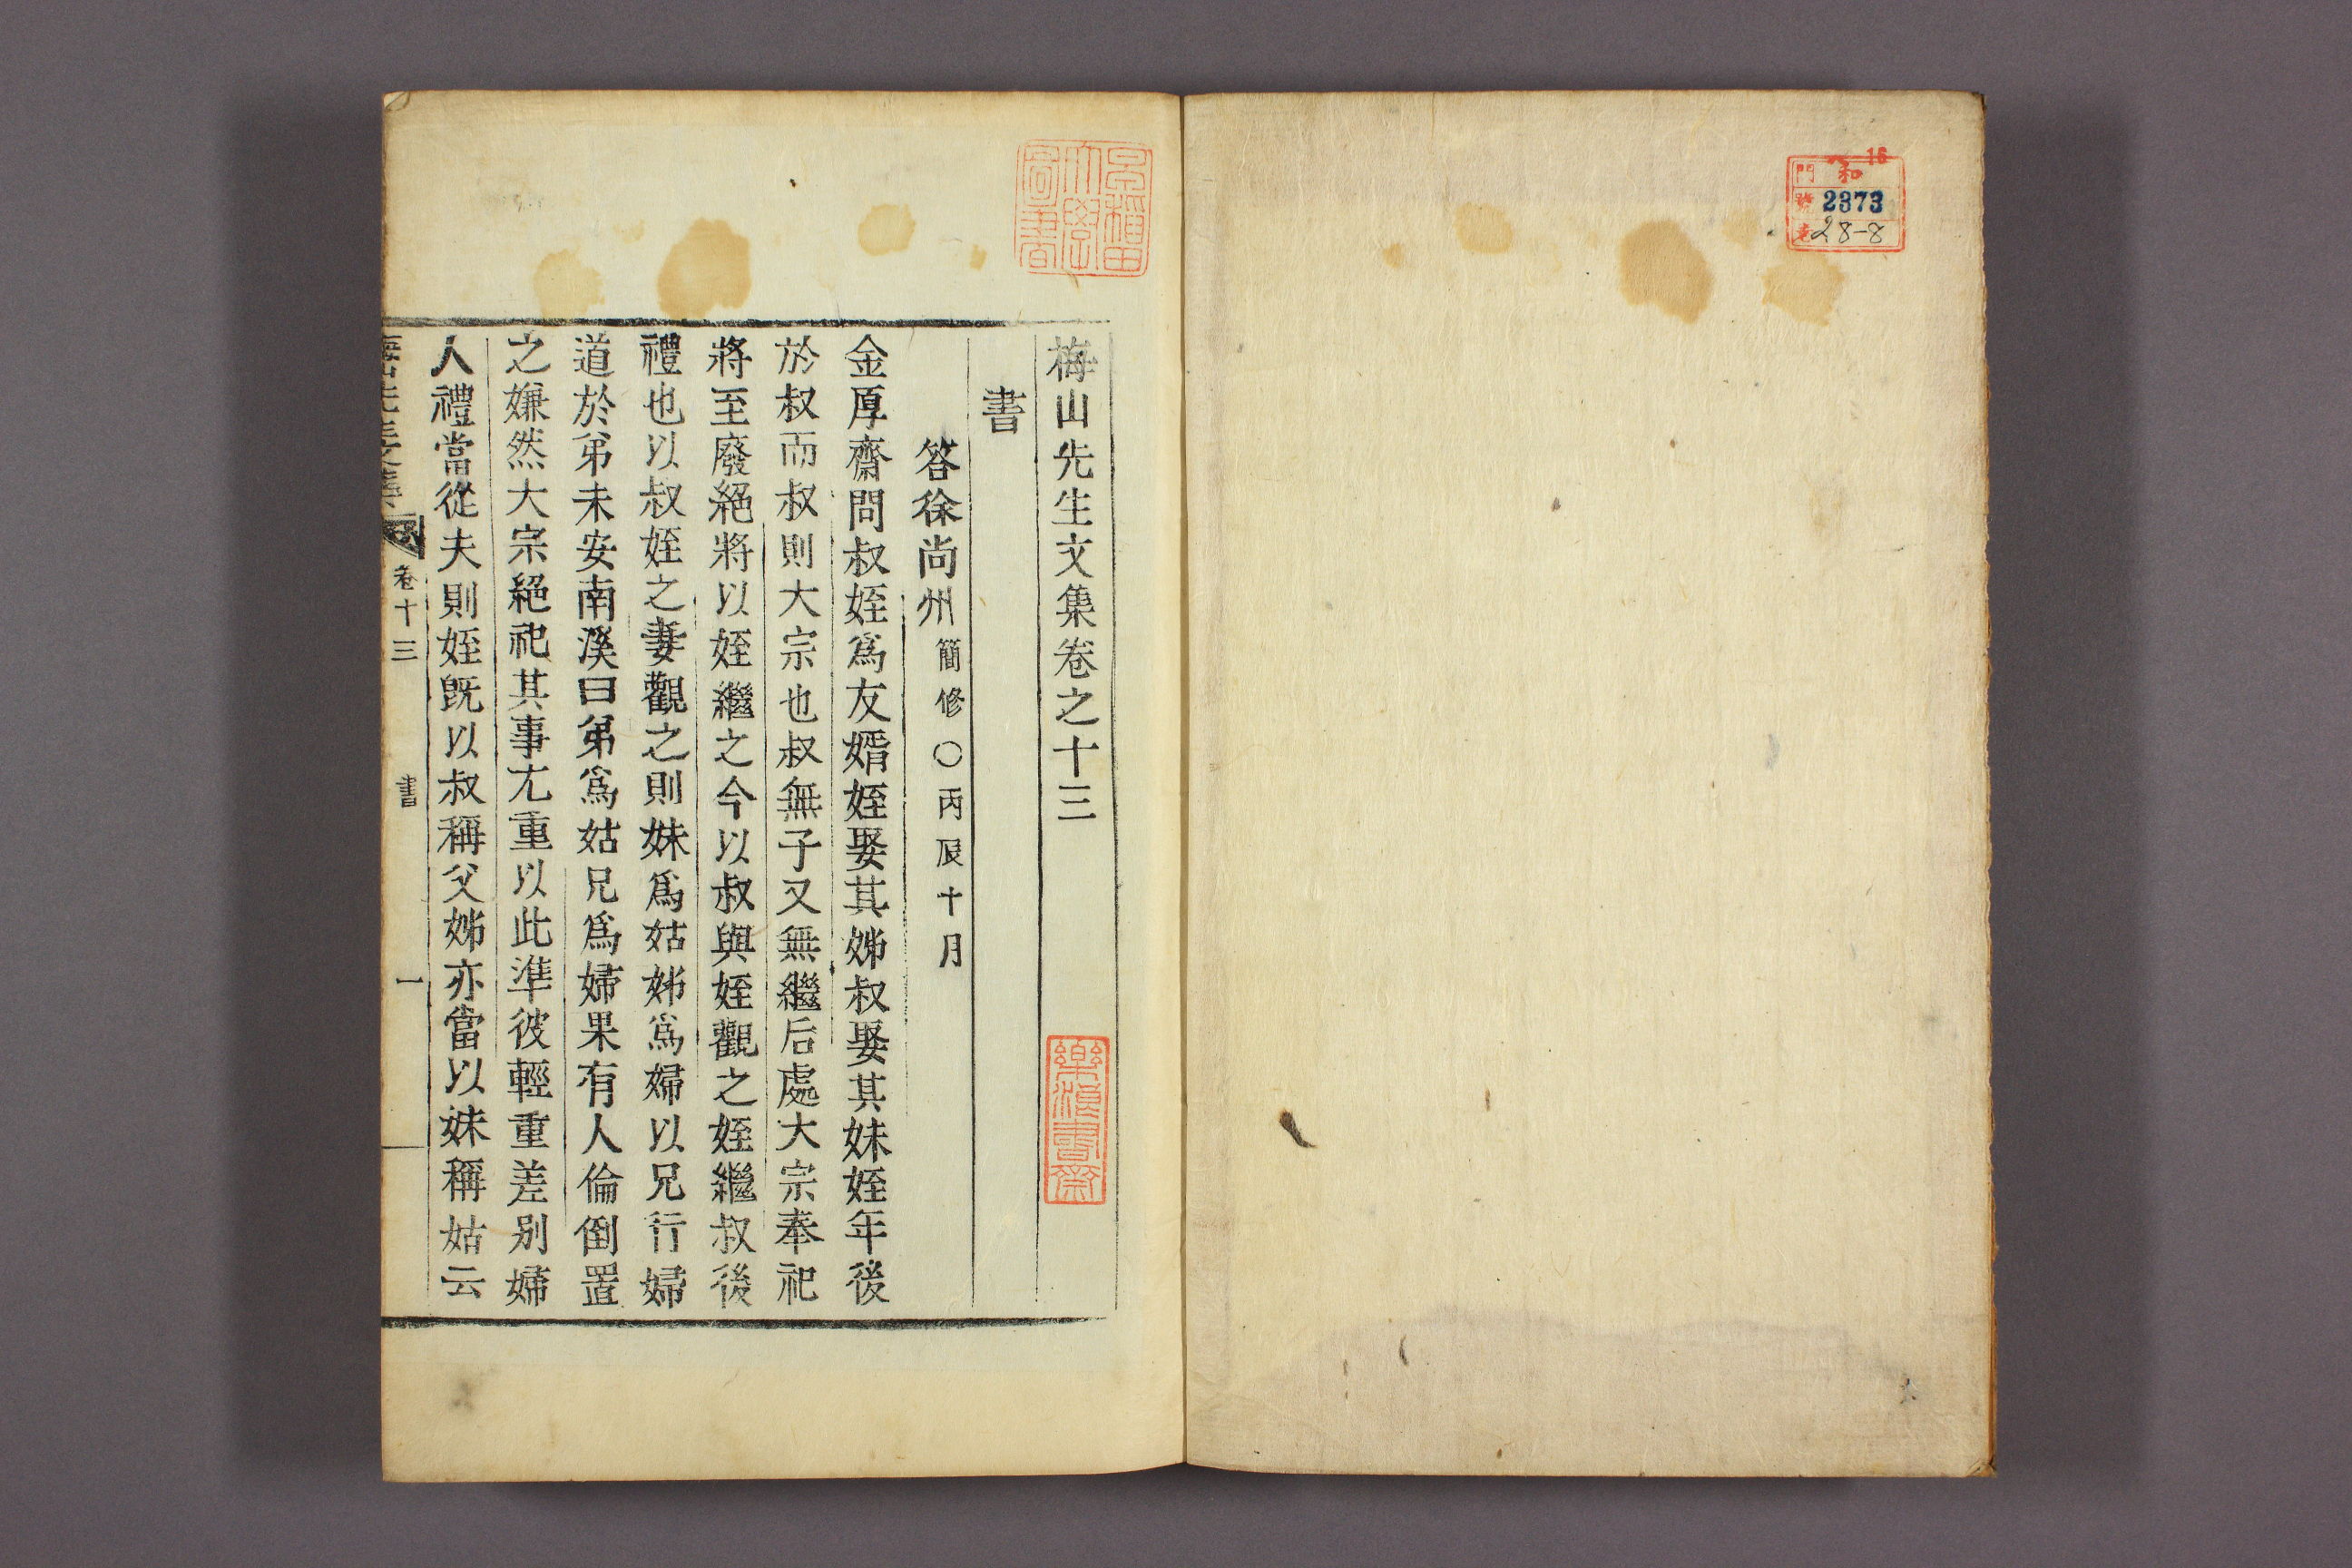 16
和
門
號 2373
28-8
早稲田
大學
圖書
梅山先生文集卷之十三
書
答徐尚州 簡修 ○ 丙辰十月
金厚齋問叔姪爲友婿姪娶其姊叔娶其妹姪年後
於叔而叔則大宗也叔無子又無繼后處大宗奉祀
將至廢絕將以姪繼之今以叔與姪觀之姪繼叔後
禮也以叔姪之妻觀之則妹爲姑姊爲婦以兄行婦
道於弟未安南溪曰弟爲姑兄爲婦果有人倫倒置
之嫌然大宗絕祀其事尤重以此準彼輕重差別婦
人禮當從夫則姪旣以叔稱父姊亦當以妹稱姑云
卷十三
書
一